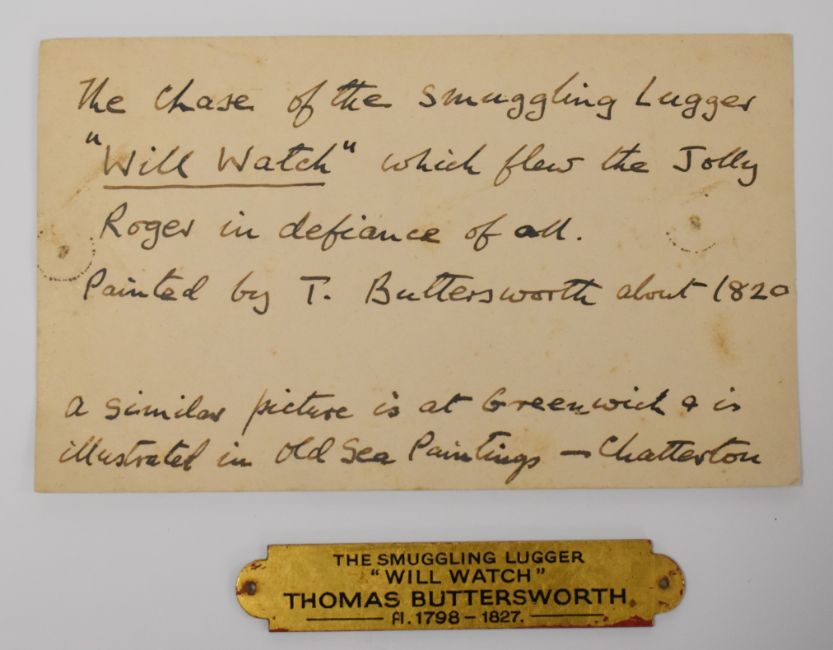 The Chase of the Smuggling Lugger
"Will Watch" which flew the Jolly
Roger in defiance of all.
Painted by T. Buttersworth about 1820
A similar picture is at Greenwich & is
illustrated in Old Sea Paintings — Chatterton
THE SMUGGLING LUGGER
"WILL WATCH"
THOMAS BUTTERSWORTH.
fl. 1798 – 1827.